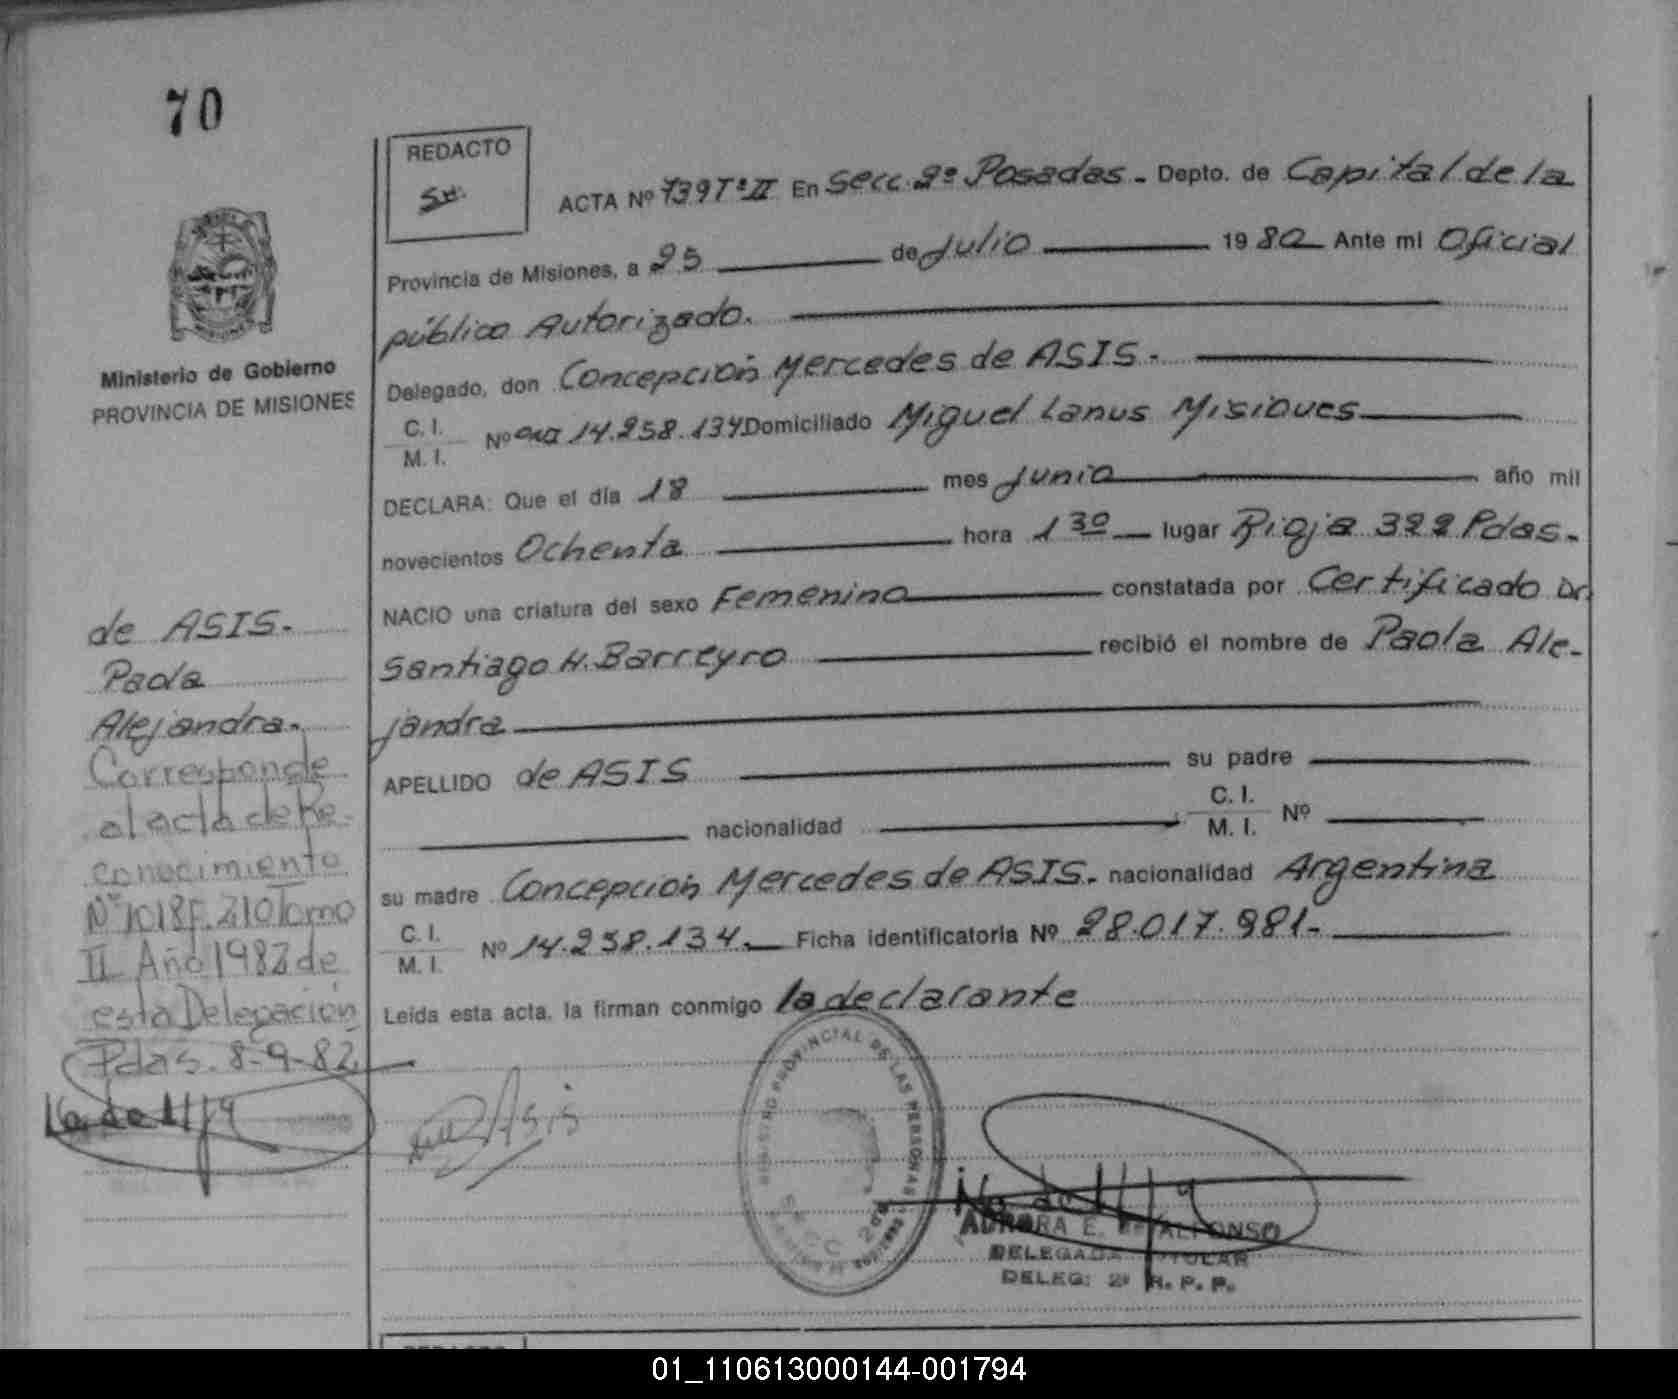 70
REDACTO
ACTA Nº 739 Tº II En Secc. 2º Posadas. Depto. de Capital de la
Provincia de Misiones, a 25 de Julio 1980 Ante mi Oficial
público Autorizado.
Delegado, don Concepción Mercedes de ASIS.
C. I.
M. I.
Nº 14.258.134 Domiciliado Miguel Lanus Misiones
DECLARA: Que el día 18 mes Junio año mil
novecientos Ochenta hora 1 30 lugar Rioja 322 Pdas.
NACIO una criatura del sexo Femenino constatada por Certificado Dr.
Santiago H. Barreyro recibió el nombre de Paola Ale-
jandra
APELLIDO de ASIS su padre
nacionalidad C. I.
M. I. Nº
su madre Concepción Mercedes de ASIS. nacionalidad Argentina
C. I.
M. I.
Nº 14.258.134. Ficha identificatoria Nº 28.017.981.
Leída esta acta, la firman conmigo la declarante
Ministerio de Gobierno
PROVINCIA DE MISIONES
de ASIS.
Paola
Alejandra.
Corresponde
al acta de Re-
conocimiento
Nº 1018 F. 210 Tomo
II Año 1982 de
esta Delegación
Pdas. 8-9-82
Asis
REGISTRO PROVINCIAL DE LAS PERSONAS
SECC 2da
AURORA E. DE ALFONSO
DELEGADA TITULAR
DELEG: 2ª R. P. P.
01_110613000144-001794